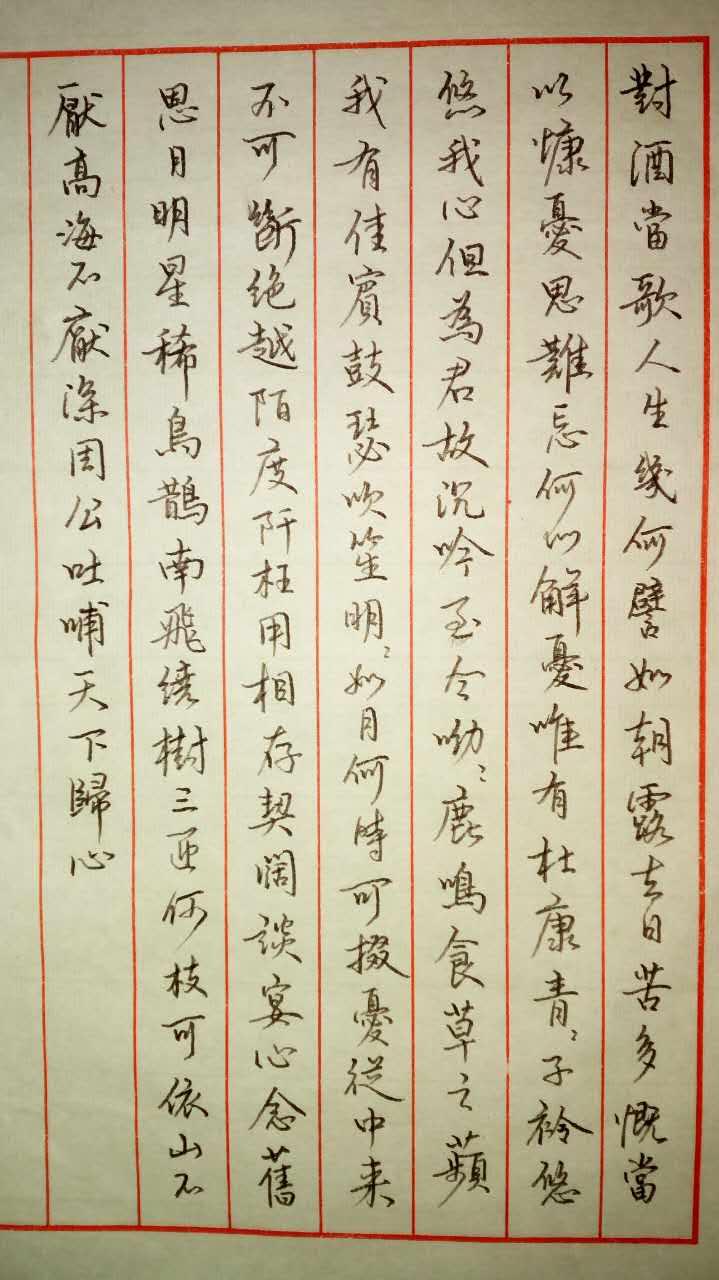 對酒當歌人生幾何譬如朝露去日苦多慨當
以慷憂思難忘何以解憂唯有杜康青〻子衿悠
悠我心但為君故沉吟至今呦〻鹿鳴食草之蘋
我有佳賓鼓瑟吹笙明〻如月何時可掇憂從中来
不可斷绝越陌度阡枉用相存契闊談宴心念舊
恩月明星稀烏鵲南飛繞樹三匝何枝可依山不
厭高海不厭深周公吐哺天下歸心